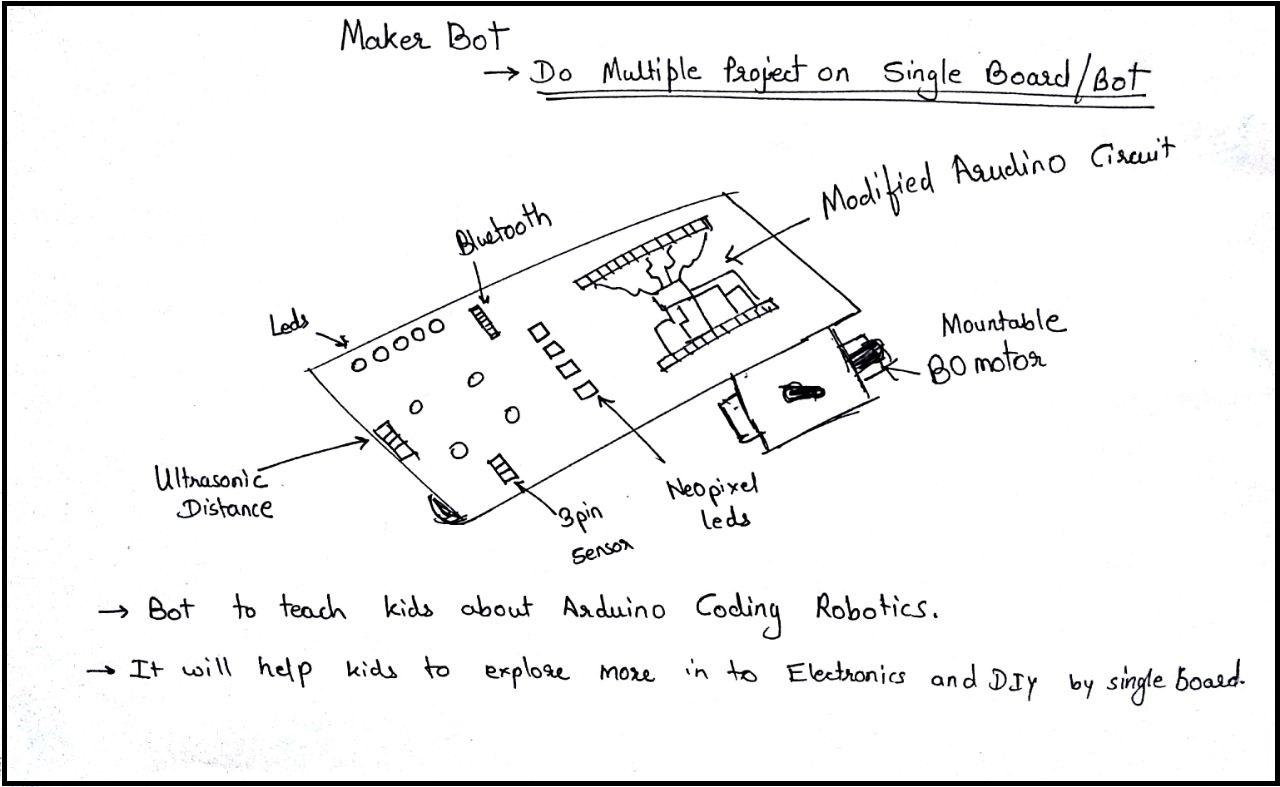 Maker Bot
→ Do Multiple Project on Single Board/Bot
Modified Arudino Circuit
Bluetooth
Leds
Mountable
BO motor
Ultrasonic
Distance
3pin
Sensor
Neopixel
leds
→ Bot to teach kids about Arduino Coding Robotics.
→ It will help kids to explore more in to Electronics and DIY by single board.